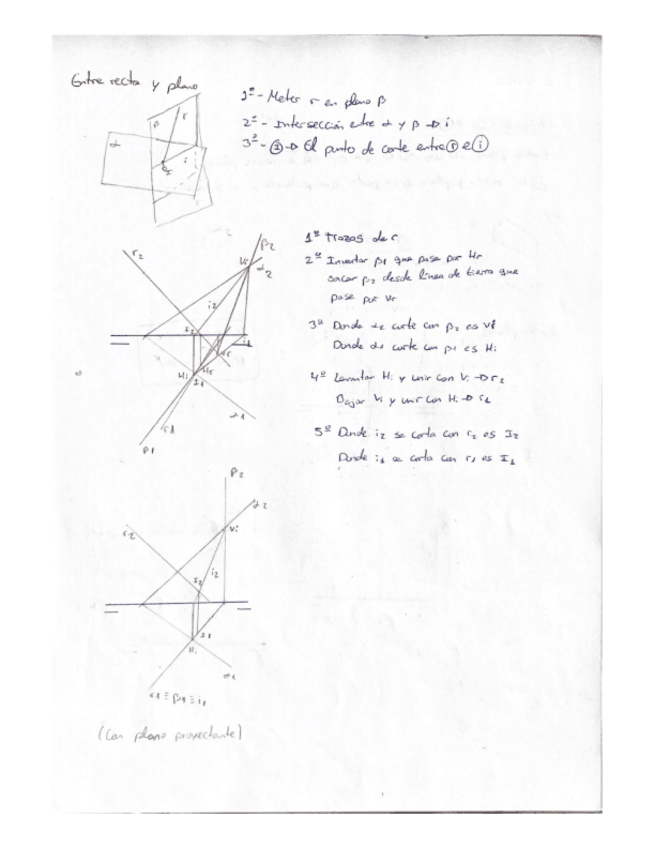 Entre recta y plano
1º - Meter r en plano β
2º - Intersección entre α y β → i
3º - (I) → El punto de corte entre (r) e (i)
β
r
α
i
I
1º trazas de r
2º Inventar β1 que pase por Hr
sacar β2 desde línea de tierra que
pase por Vr
3º Donde α2 corte con β2 es Vi
Donde α1 corte con β1 es Hi
4º Levantar Hi y unir con Vi → r2
Bajar Vi y unir con Hi → r1
5º Donde i2 se corta con r2 es I2
Donde i1 se corta con r1 es I1
β2
r2
Vi
α2
i2
I2
i1
Hi
Hr
I1
α1
r1
β1
β2
α2
r2
Vi
I2
i2
I1
Hi
α1
r1 ≡ β1 ≡ i1
(Con plano proyectante)